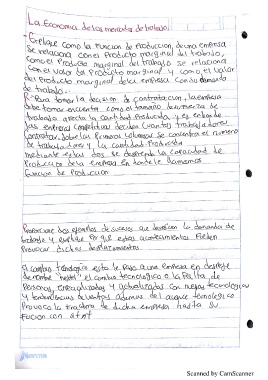 La Economia de los mercados de trabajo
- Explique como la Funcion de Producción, de una empresa
se relaciona con el Producto marginal del trabajo,
como el Producto marginal del trabajo se relaciona
con el valor del Producto marginal y como el valor
del Producto marginal de la empresa con la demanda
de trabajo.
R- Para tomar la decision de contratacion, la empresa
debe tomar en cuenta como el tamaño de la fuerza de
trabajo afecta la cantidad Producida, y es en donde
las empresas competitivas deciden cuantos trabajadores
contratar. Sobre las Primeras Columnas se encuentra el numero
de trabajadores y la cantidad Producida
mediante estas dos se describe la capacidad de
Produccion de la empresa en donde le llamamos
Funcion de Produccion
Proporcione dos ejemplos de sucesos que desplacen la demanda de
trabajo y explique Por que estos acontecimientos Pueden
Provocar dichos desplazamientos.
El cambio tecnologico esta de Paso a una empresa en
de nombre "nextel" el cambio tecnologico o la Falta de
Personas, especializadas y actualizadas con nuevas tecnologias
y tendencias además del auge tecnologico
Provoco la de dicha empresa hasta su
Fusion con at&t
Norma
Scanned by CamScanner